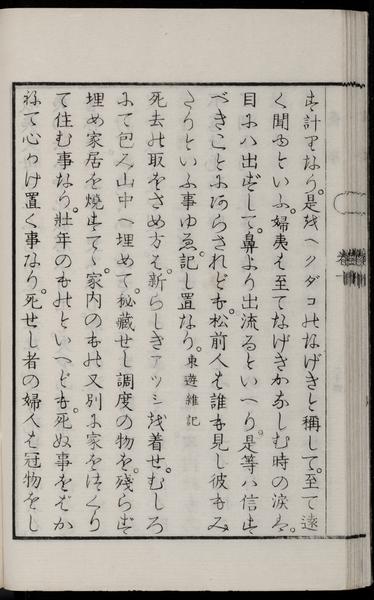 す計りなり。是をヘクダコのなげきと稱して。至て遠
く聞ゆといふ。婦夷は至てなげきかなしむ時の涙は。
目にハ出ずして。鼻より出流るといへり。是等ハ信ず
べきことにあらざれども。松前人は誰も見し彼もみ
たりといふ事ゆゑ。記し置なり。東遊雜記
死去の取をさめ方は。新らしきアツシを着せ。むしろ
にて包ミ山中へ埋めて。秘藏せし調度の物を。殘らず
埋め家居を燒すてゝ。家内のもの又別に家をつくり
て住む事なり。壯年のものといへども。死ぬ事をばか
ねて心がけ置く事なり。死せし者の婦人は冠物をし